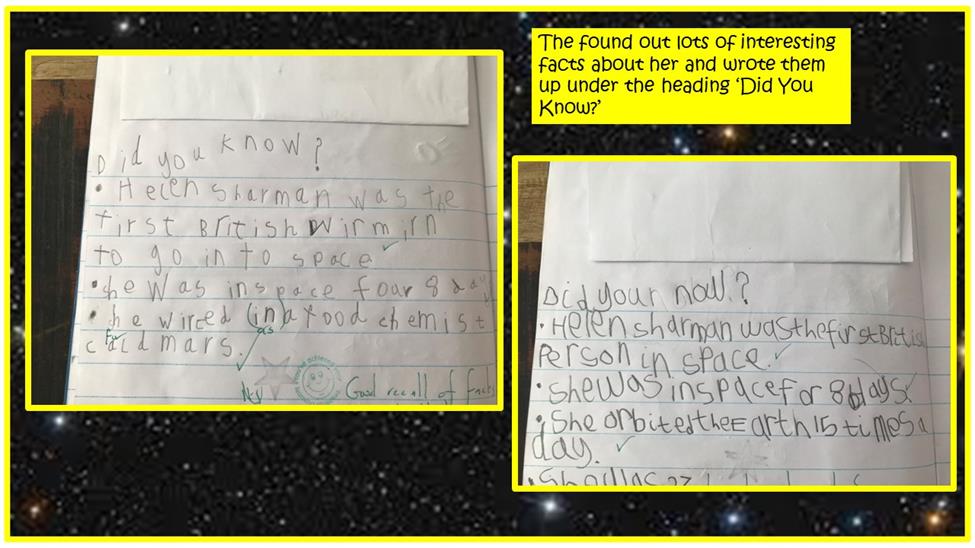 The found out lots of interesting
facts about her and wrote them
up under the heading ‘Did You
Know?’
Did you know?
• Helen sharman was the
first British wirmirn
to go in to space
• he was inspace foar 8 day
• he wirced (in) a food chemist
as
cald mars.
Good recall of facts
Did your now?
• Helen sharman was the first British
Person in space.
• she was in space for 8 days.
• She orbited the Earth 15 times a
day.